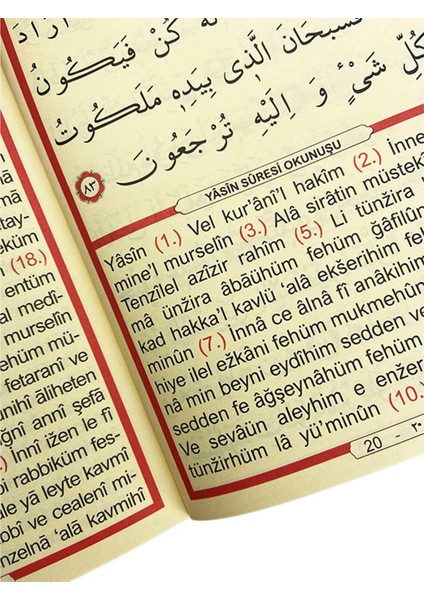 اَرَادَ
لَهُ كُنْ فَيَكُونُ
فَسُبْحَانَ الَّذٖى بِيَدِهٖ مَلَكُوتُ
كُلِّ شَىْءٍ وَ اِلَيْهِ تُرْجَعُونَ
٨٣
YÂSİN SÛRESİ OKUNUŞU
Yâsîn (1.) Vel kur'âni'l hakîm (2.) İnne
mine'l murselîn (3.) Alâ sirâtin müstekî
Tenzîlel azîzir rahîm (5.) Li tünžira
mâ ünžira âbâühüm fehüm ğâfilûn
kad hakka'l kavlü 'alâ ekšerihim feh
minûn (7.) İnnâ ce âlnâ fî anâkihim
hiye ilel ežkâni fehüm mukmehûn
nâ min beyni eydîhim sedden ve
sedden fe âğşeynâhüm fehüm
Ve sevâün aleyhim e enžer
tünžirhüm lâ yü'minûn (10.)
20 - ٢٠
tay-
eküm
(18.)
entüm
al medî-
murselîn
ehüm mü-
fetaranî ve
unihî âliheten
ğnî annî şefâ
.) İnnî ižen le fî
i rabbiküm fes-
ale yâ leyte kavmî
bbî ve cealenî mi-
nzelnâ 'alâ kavmihî